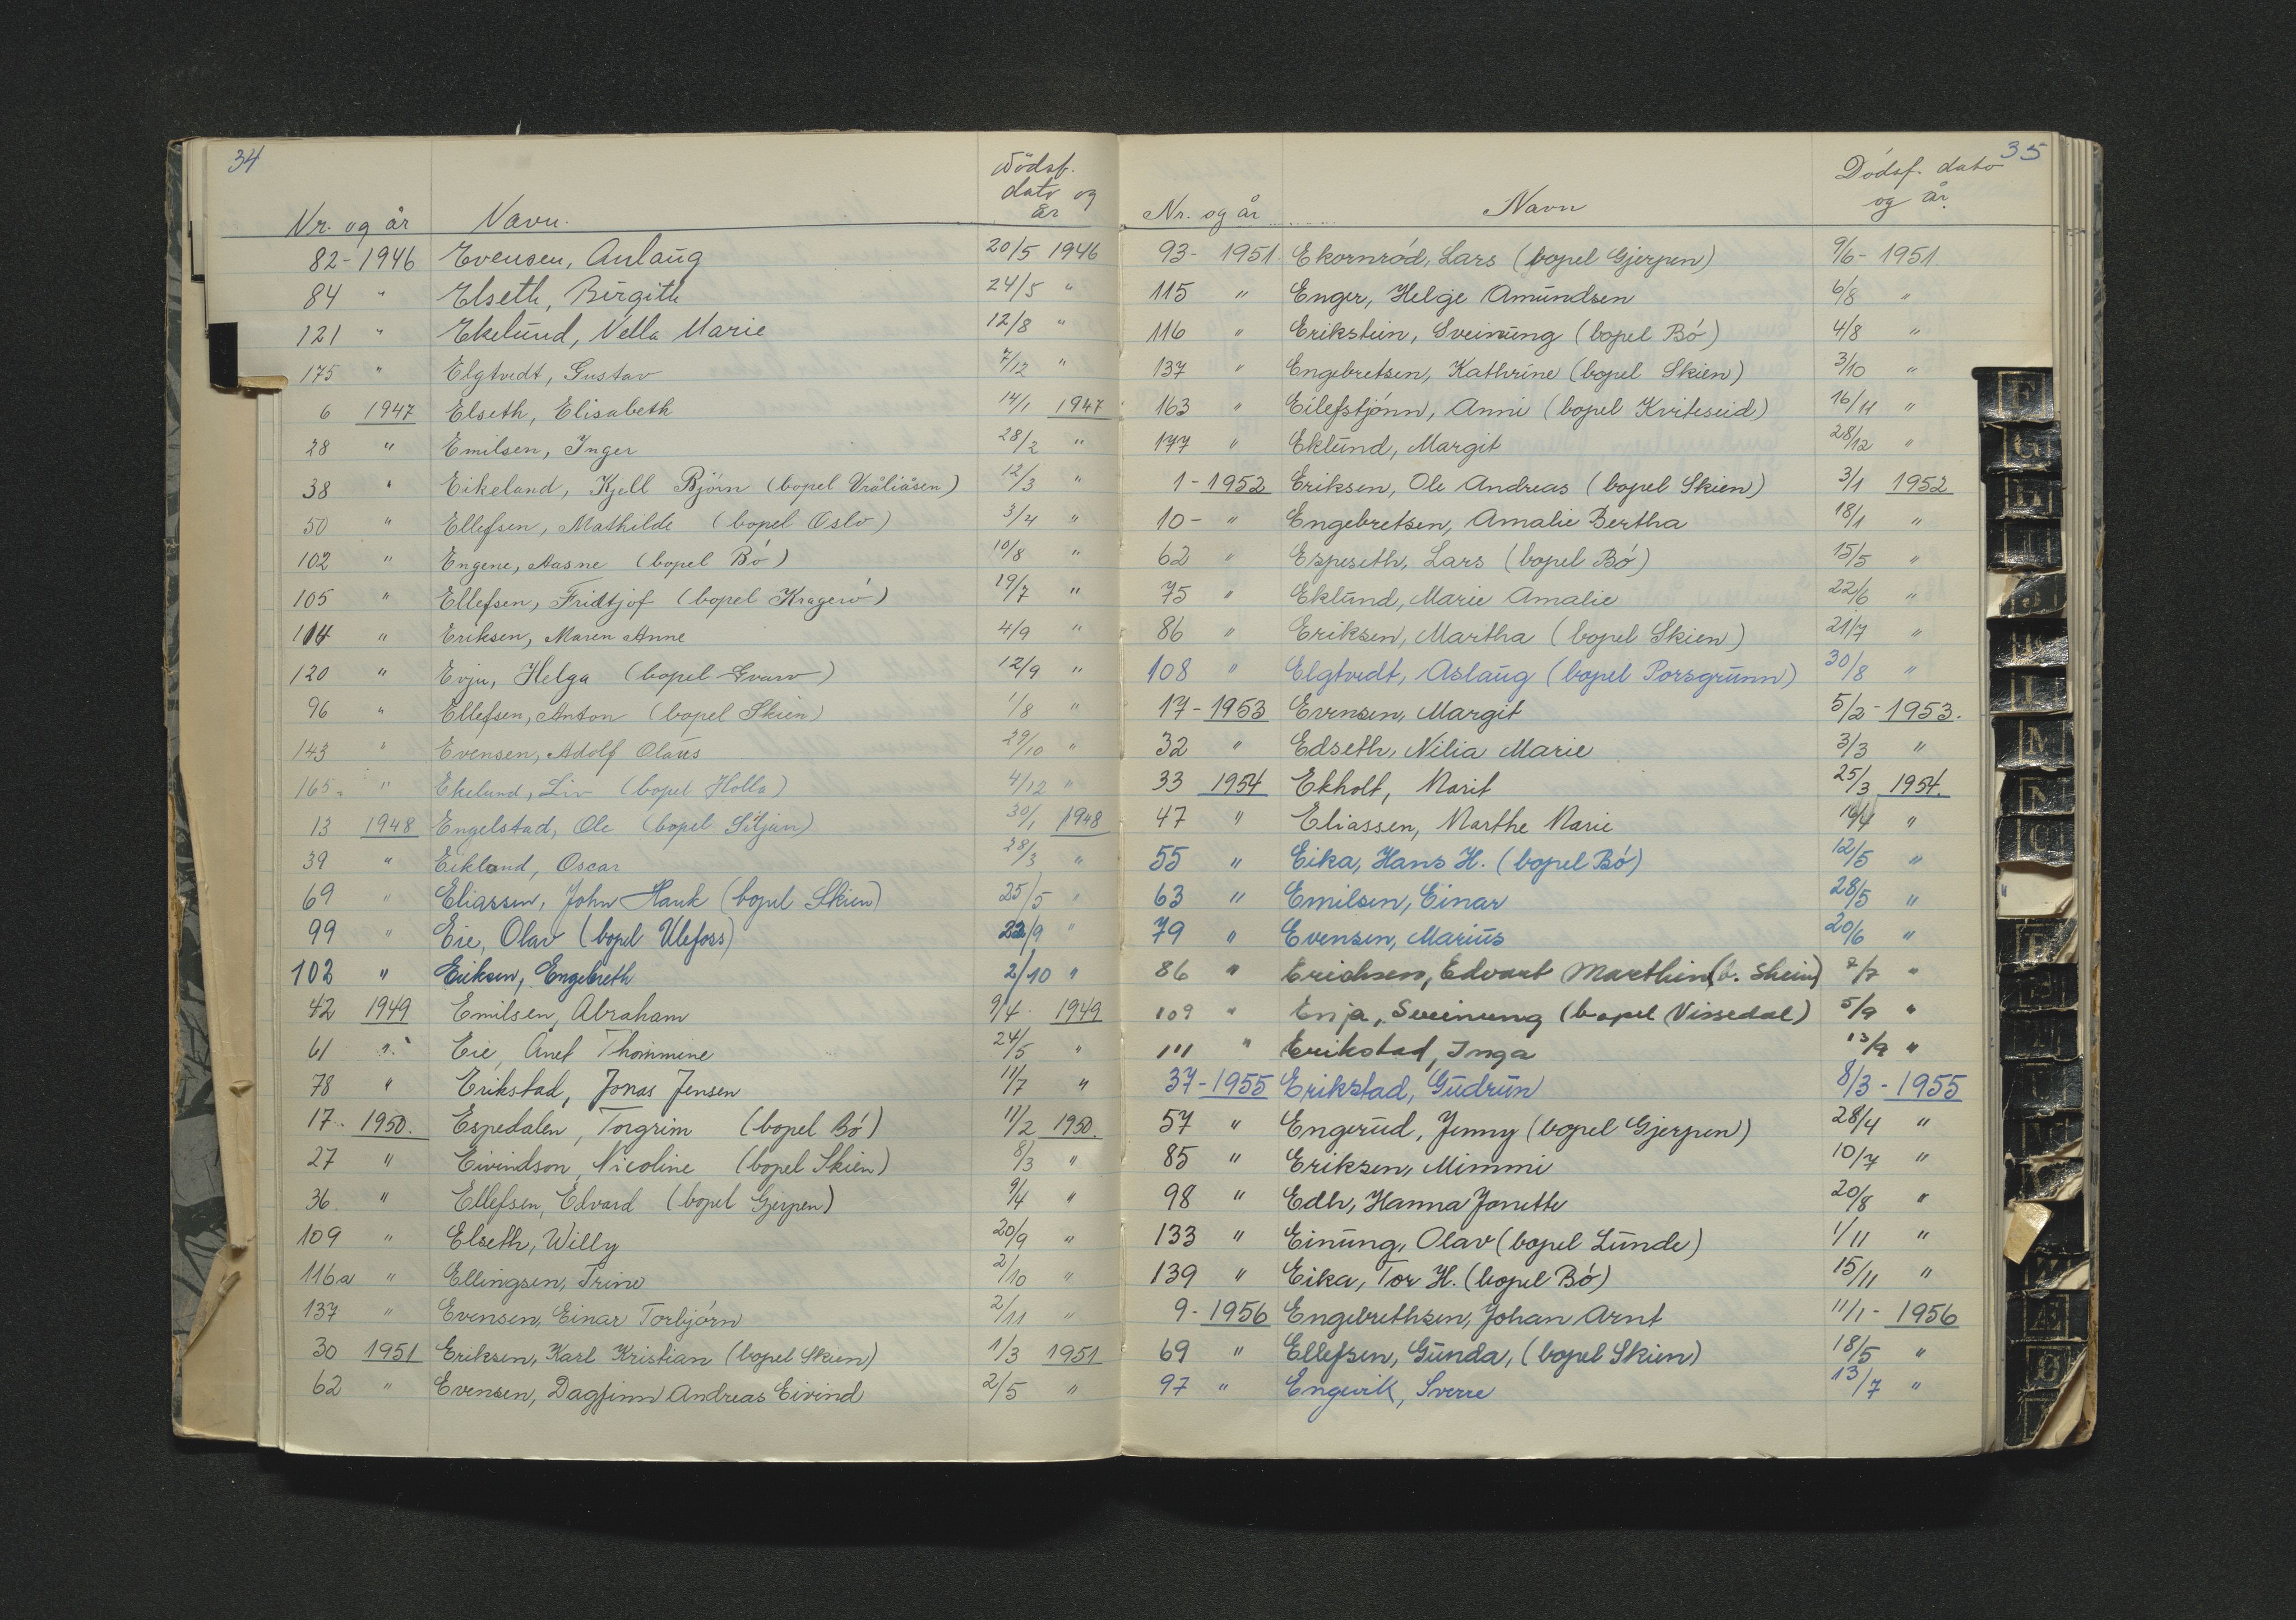 34
Nr. og år Navn. Dödsf. dato og år
82- 1946 Evensen, Anlaug 20/5 1946
84 " Elseth, Birgith 24/5 "
121 " Ekelund, Nella Marie 12/8 "
175 " Elgtvedt, Gustav 7/12 "
6 1947 Elseth, Elisabeth 14/1 1947
28 " Emilsen, Inger 28/2 "
38 " Eikeland, Kjell Björn (bopel Vråliåsen) 12/3 "
50 " Ellefsen, Mathilde (bopel Oslo) 3/4 "
102 " Engene, Aasne (bopel Bó) 10/8 "
105 " Ellefsen, Fridtjof (bopel Krageró) 19/7 "
114 " Eriksen, Maren Anne 4/9 "
120 " Evju, Helga (bopel Gvarv) 12/9 "
96 " Ellefsen, Anton (bopel Skien) 1/8 "
143 " Evensen, Adolf Olaus 29/10 "
165a " Ekelund, Liv (bopel Holla) 4/12 "
13 1948 Engelstad, Ole (bopel Siljan) 30/1 1948
39 " Eikland, Oscar 28/3 "
69 " Eliassen, John Hauk (bopel Skien) 25/5 "
99 " Eie, Olav (bopel Ulefoss) 22/9 "
102 " Eriksen, Engebreth 2/10 "
42 1949 Emilsen, Abraham 9/4 1949
61 " Eie, Anet Thommine 24/5 "
78 " Erikstad, Jonas Jensen 11/7 "
17. 1950. Espedalen, Torgrim (bopel Bó) 11/2 1950.
27 " Eivindson, Nicoline (bopel Skien) 8/3 "
36 " Ellefsen, Edvard (bopel Gjerpen) 9/4 "
109 " Elseth, Willy 20/9 "
116a " Ellingsen, Trine 2/10 "
137 " Evensen, Einar Torbjórn 2/11 "
30 1951 Eriksen, Karl Kristian (bopel Skien) 1/3 1951
62 " Evensen, Dagfinn Andreas Eivind 2/5 "
35
Nr. og år Navn Dódsf. dato og år.
93- 1951. Ekornród, Lars (bopel Gjerpen) 9/6- 1951.
115 " Enger, Helge Amundsen 6/8 "
116 " Erikstein, Sveinung (bopel Bó) 4/8 "
137 " Engebretsen, Kathrine (bopel Skien) 3/10 "
163 " Eilefstjónn, Anni (bopel Kviteseid) 16/11 "
177 " Eklund, Margit 28/12 "
1- 1952 Eriksen, Ole Andreas (bopel Skien) 3/1 1952
10- " Engebretsen, Amalie Bertha 18/1 "
62 " Espeseth, Lars (bopel Bó) 15/5 "
75 " Eklund, Marie Amalie 22/6 "
86 " Eriksen, Martha (bopel Skien) 21/7 "
108 " Elgtvedt, Aslaug (bopel Porsgrunn) 30/8 "
17- 1953 Evensen, Margit 5/2- 1953.
32 " Edseth, Nilia Marie 3/3 "
33 1954 Ekholt, Marit 25/3 1954.
47 " Eliassen, Marthe Marie "
55 " Eika, Hans H. (bopel Bó) 12/5 "
63 " Emilsen, Einar 28/5 "
79 " Evensen, Marius 20/6 "
86 " Erichsen, Edvart Marthin (b. Skein) 7/7 "
109 " Enja, Sveinung (bopel Nissedal) 5/9 "
111 " Erikstad, Inga 13/9 "
37- 1955 Erikstad, Gudrun 8/3- 1955
57 " Engerud, Jenny (bopel Gjerpen) 28/4 "
85 " Eriksen, Mimmi 10/7 "
98 " Edh, Hanna Janette 20/8 "
133 " Einung, Olav (bopel Lunde) 1/11 "
139 " Eika, Tor H. (bopel Bó) 15/11 "
9- 1956 Engebrethsen, Johan Arnt 11/1- 1956
69 " Ellefsen, Gunda, (bopel Skien) 18/5 "
97 " Engevik, Sverre 13/7 "
F
G
H
I
J
K
L
M
N
O
P
Æ
Ø